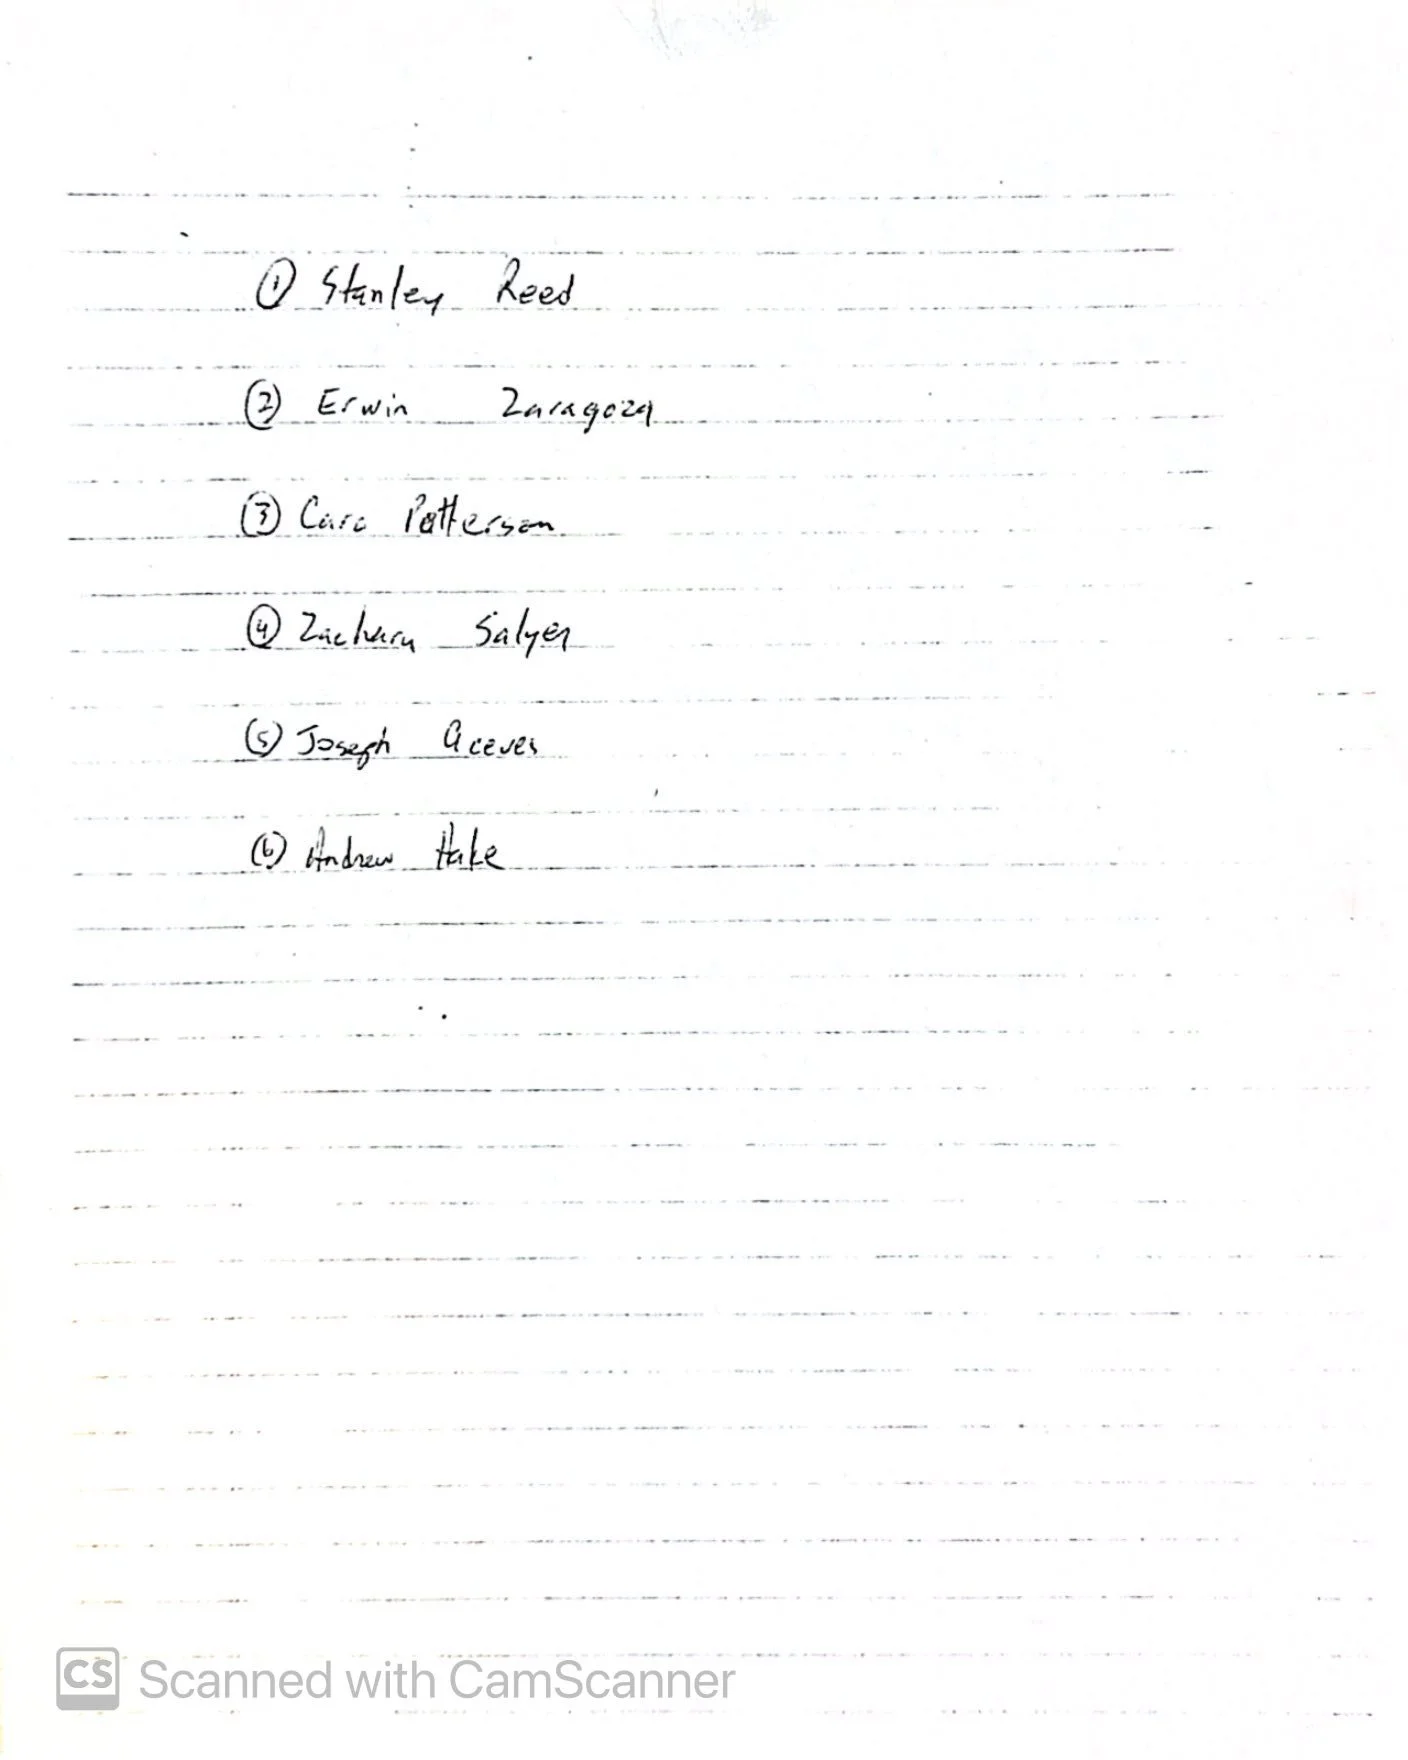 ① Stanley Reed
② Erwin Zaragoza
③ Cara Patterson
④ Zachary Salyer
⑤ Joseph Aceves
⑥ Andrew Hake
CS Scanned with CamScanner